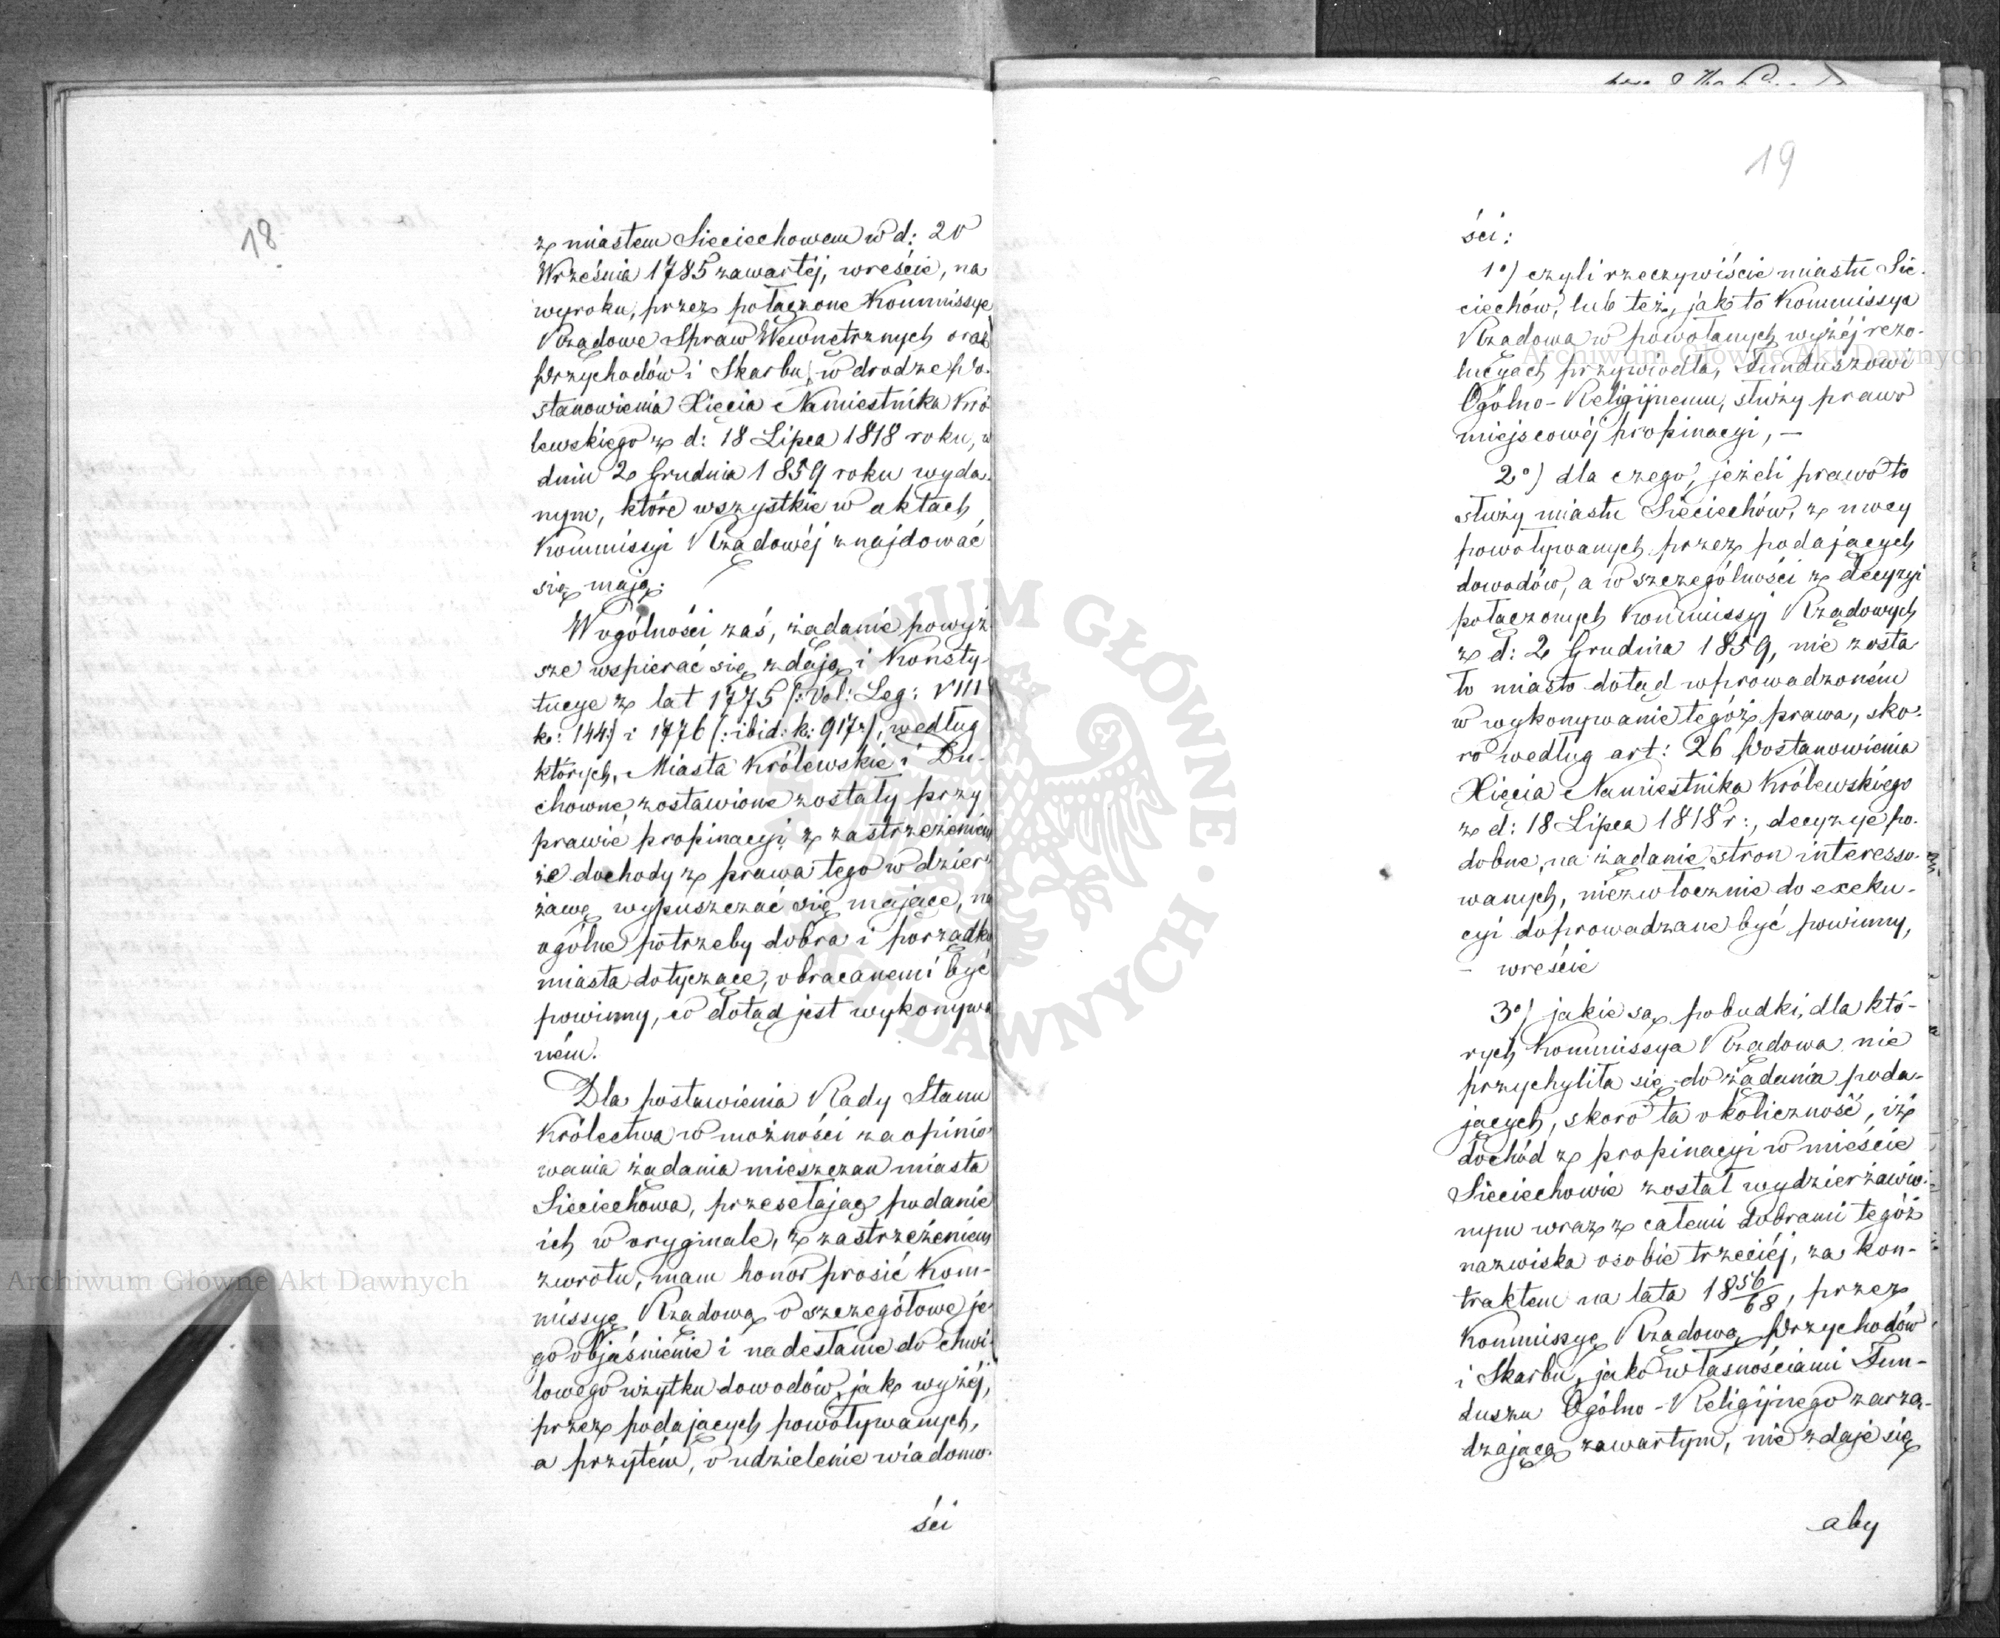 18
z miastem Sieciechowem w d: 20
Września 1785 zawartéj, wreście, na
wyroku, przez połączone Kommissye
Rządowe Spraw Wewnętrznych oraz
Przychodów i Skarbu, w drodze Po-
stanowienia Xięcia Namiestnika Kró
lewskiego z d: 18 Lipca 1818 roku, w
dniu 2 Grudnia 1859 roku wyda-
nym, które wszystkie w aktach
Kommissyi Rządowéj znajdować
się mają.
W ogólności zaś, żądanie powyż
sze wspierać się zdają i Konsty-
tucye z lat 1775 (: Vol: Leg: VIII
k: 144:) i 1776 (: ibid: k: 917:), według
których, Miasta Królewskie i Du-
chowne zostawione zostały przy
prawie propinacyi z zastrzeżeniem
że dochody z prawa tego w dzier-
żawę wypuszczać się mające, na
ogólne potrzeby dobra i porządku
miasta dotyczące, obracanemi być
powinny, co dotąd jest wykonywa
ném.
Dla postawienia Rady Stanu
Królestwa w możności zaopinio-
wania żądania mieszczan miasta
Sieciechowa, przesełając podanie
ich w oryginale, z zastrzeżeniem
zwrotu, mam honor prosić Kom-
missyę Rządową o szczegółowe je-
go objaśnienie i nadesłanie do chwi-
lowego użytku dowodów, jak wyżéj,
przez podających powoływanych,
a przytém, o udzielenie wiadomo-
ści
19
ści:
1o) czyli rzeczywiście miastu Sie-
ciechów, lub też, jak to Kommissya
Rządowa w powołanych wyżéj rezo-
lucyach przywiodła, Funduszowi
Ogólno-Religijnemu, służy prawo
miejscowéj propinacyi, —
2o) dla czego, jeżeli prawo to
służy miastu Sieciechów, z mocy
powoływanych przez podających
dowodów, a w szczególności z decyzyi
połączonych Kommissyj Rządowych
z d: 2 Grudnia 1859, nie zosta
ło miasto dotąd wprowadzoném
w wykonywanie tegóż prawa, sko-
ro według art: 26 Postanowienia
Xięcia Namiestnika Królewskiego
z d: 18 Lipca 1818 r:, decyzye po-
dobne, na żądanie stron interesso-
wanych, niezwłocznie do exeku-
cyi doprowadzane być powinny,
– wreście
3o) jakie są pobudki, dla któ-
rych Kommissya Rządowa nie
przychyliła się do żądania poda-
jących, skoro ta okoliczność, iż
dochód z propinacyi w mieście
Sieciechowie został wydzierżawio-
nym wraz z całemi dobrami tegóż
nazwiska osobie trzeciéj, za kon-
traktem na lata 1856/68, przez
Kommissyę Rządową Przychodów
i Skarbu, jako własnościami Fun-
duszu Ogólno-Religijnego zarzą-
dzającą zawartym, nie zdaje się
aby
Archiwum Główne Akt Dawnych
Archiwum Główne Akt Dawnych
ARCHIWUM GŁÓWNE AKT DAWNYCH